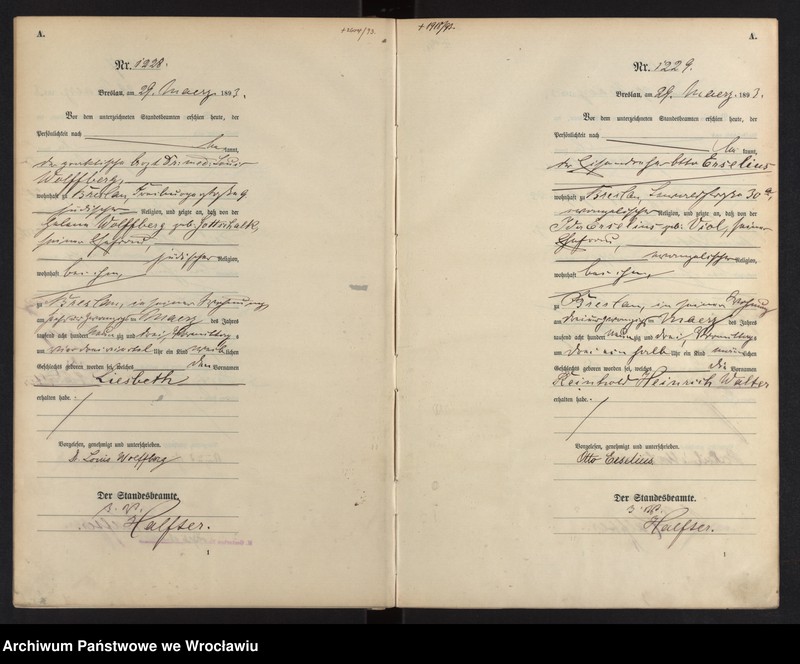 A.
Nr. 1228.
Breslau, am 29. Maerz 1893.
Vor dem unterzeichneten Standesbeamten erschien heute, der
Persönlichkeit nach
kannt,
der praktische Arzt Dr. med. Louis
Wolffberg,
wohnhaft zu Breslau, Freiburgerstraße 9
jüdischer Religion, und zeigte an, daß von der
Helene Wolffberg geb. Gottschalk,
seiner Ehefrau,
jüdischer Religion,
wohnhaft bei ihm,
zu Breslau, in seiner Wohnung
am sechsundzwanzigsten Maerz des Jahres
tausend acht hundert neunzig und drei, Vormittags
um vier dreiviertel Uhr ein Kind weiblichen
Geschlechts geboren worden sei, welches den Vornamen
Liesbeth
erhalten habe.
Vorgelesen, genehmigt und unterschrieben.
Dr. Louis Wolffberg
Der Standesbeamte.
Halfter.
1
+1918/93.
A.
Nr. 1229.
Breslau, am 29. Maerz 1893.
Vor dem unterzeichneten Standesbeamten erschien heute, der
Persönlichkeit nach
kannt,
der Eisendreher Otto Erselius
wohnhaft zu Breslau, 30
evangelischer Religion, und zeigte an, daß von der
Ida Erselius geb. Viol, seiner
Ehefrau,
evangelischer Religion,
wohnhaft bei ihm,
zu Breslau, in seiner Wohnung
am dreiundzwanzigsten Maerz des Jahres
tausend acht hundert neunzig und drei, Vormittags
um drei ein halb Uhr ein Kind männlichen
Geschlechts geboren worden sei, welches die Vornamen
Reinhold Heinrich Walter
erhalten habe.
Vorgelesen, genehmigt und unterschrieben.
Otto Erselius
Der Standesbeamte.
Halfter.
1
Archiwum Państwowe we Wrocławiu